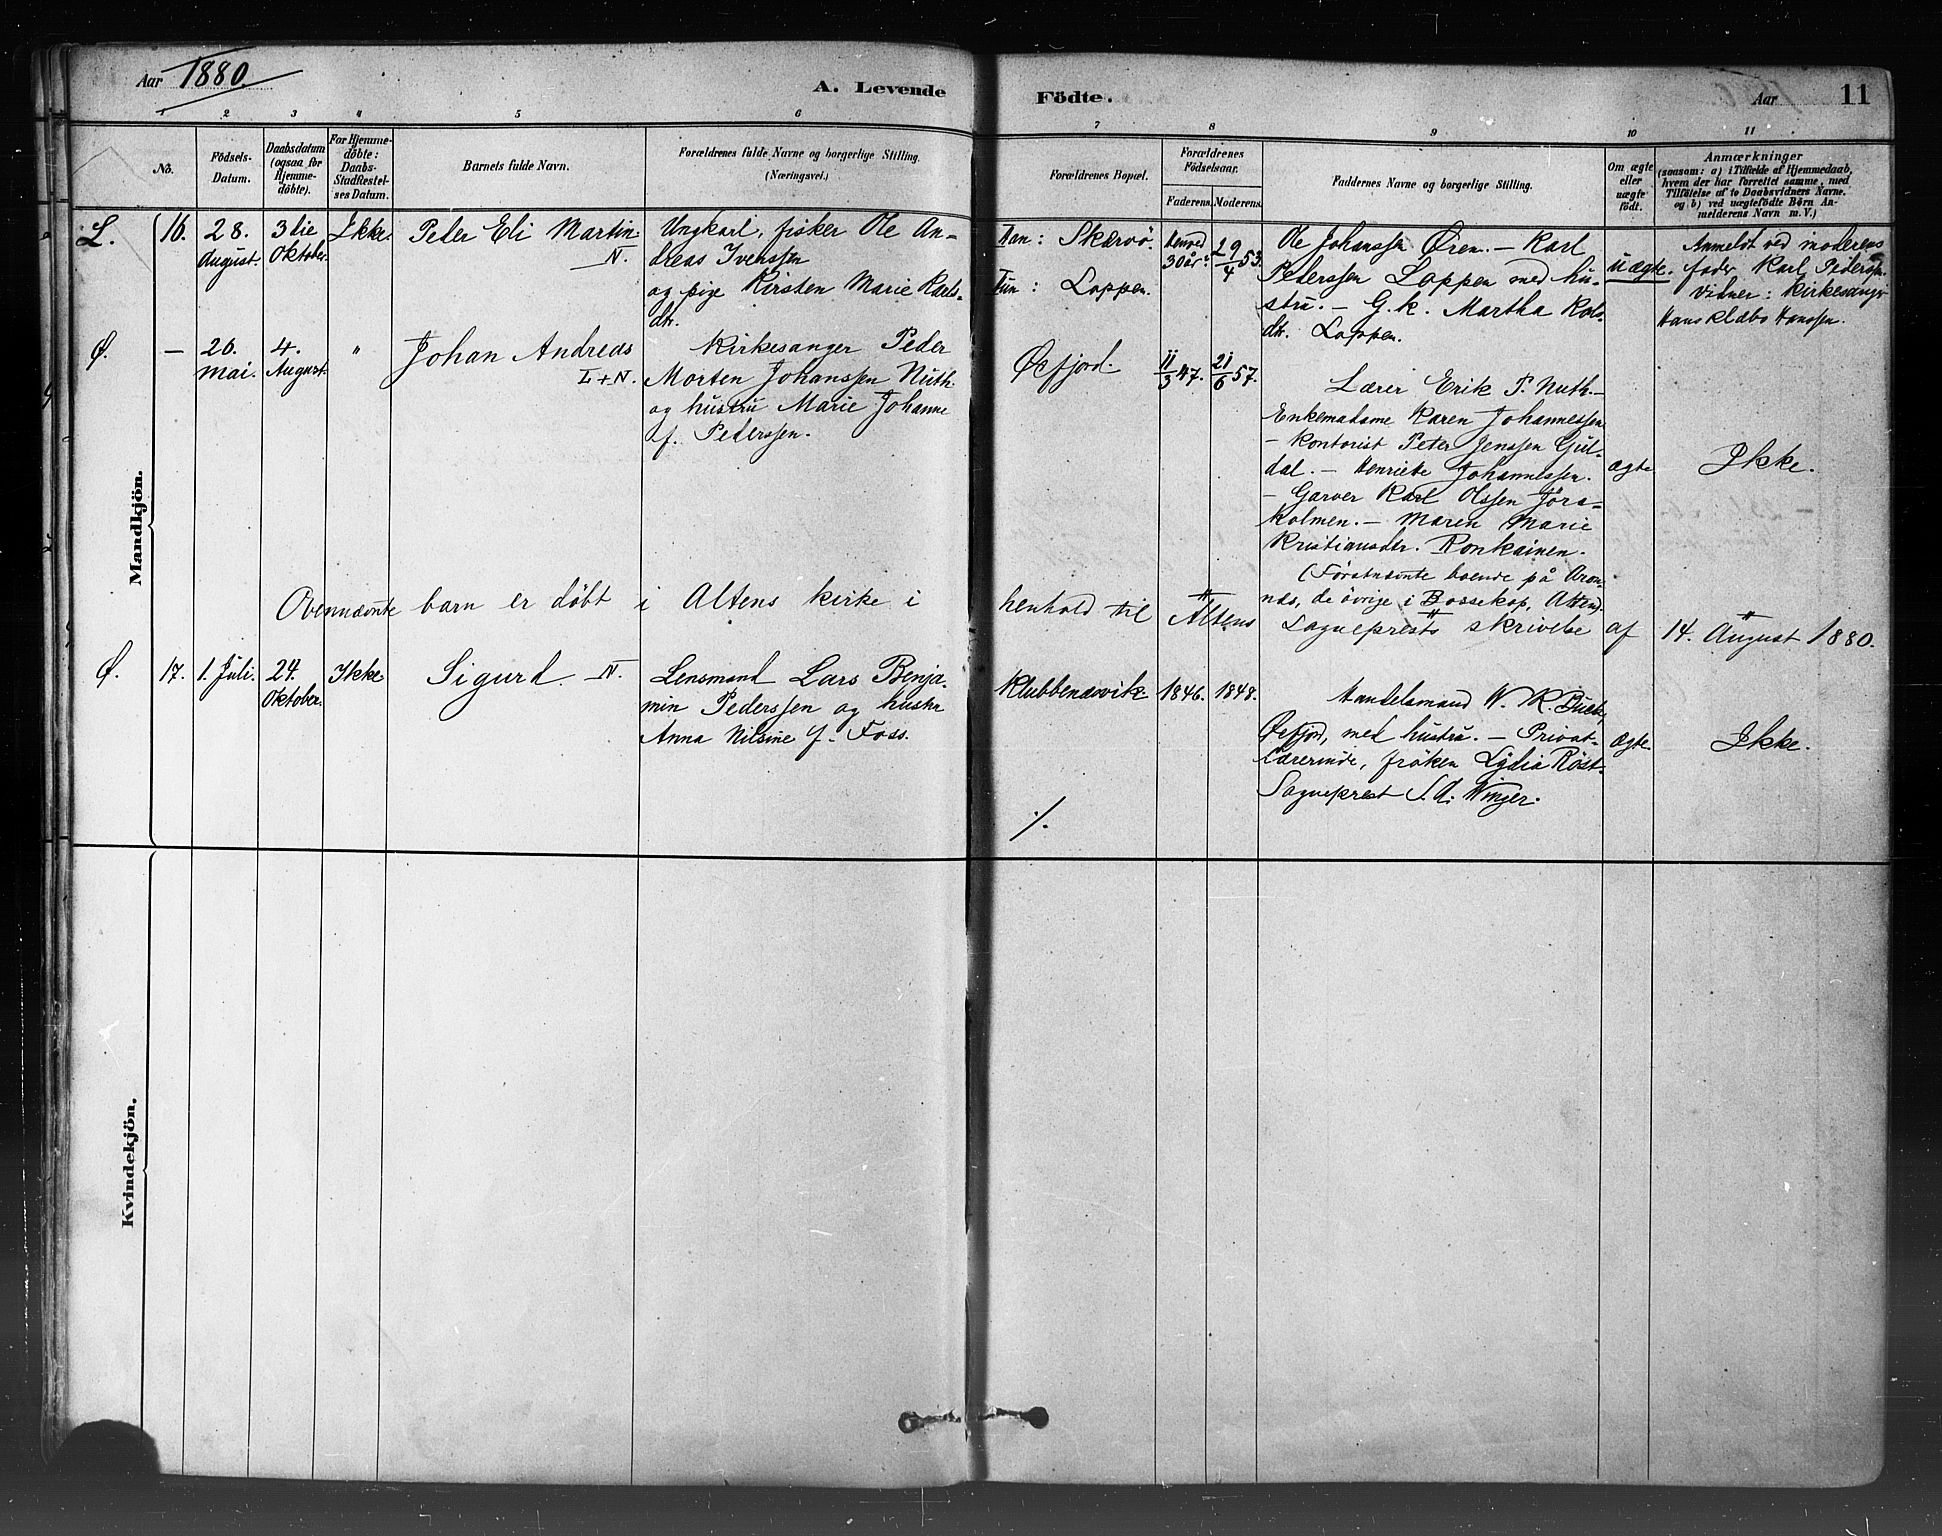 Aar 1880.
A. Levende
Födte.
Aar
11
1 2 3 4 5 6 7 8 9 10 11
No.
Födsels-
Datum.
Daabsdatum
(ogsaa for
Hjemme-
döbte).
For Hjemme-
döbte:
Daabs-
Stadfæstel-
ses Datum.
Barnets fulde Navn.
Forældrenes fulde Navne og borgerlige Stilling.
(Næringsvei.)
Forældrenes Bopæl.
Forældrenes
Födselsaar.
Faderens. Moderens.
Faddernes Navne og borgerlige Stilling.
Om ægte
eller
uægte
födt.
Anmærkninger
(saasom: a) i Tilfælde af Hjemmedaab,
hvem der har forrettet samme, med
Tilföielse af to Daabsvidners Navne.
og b) ved uægtefödte Börn An-
melderens Navn m. V.)
Mandkjön.
L.
16.
28.
august.
3die
Oktober.
Ikke.
Peder Eli Martin
N.
Ungkarl, fisker Ole An-
dreas Ivenssen
og pige Kirsten Marie Karls-
dtr.
Han: Skærvö.
Hun: Loppen.
henved
30 år.
29/4 53.
Ole Johanssen Øren. — Karl
Pederssen Loppen med hu-
stru. — G. k. Martha Kols-
dtr. Loppen.
uægte.
Anmeldt ved moderens
fader Karl Pederssen.
Vidner: Kirkesanger
Hans Klæbo Hanssen.
Ø.
—
26.
mai.
4.
August.
"
Johan Andreas
L+N.
Kirkesanger Peder
Morten Johanssen Nuth
og hustru Marie Johanne
f. Pederssen.
Øxfjord.
11/3 47.
21/6 57.
Lærer Erik P. Nuth. —
Enkemadame Karen Johannessen
— Kontorist Peter Jenssen Gul-
dal. — Henriette Johannessen.
— Garver Karl Olssen Jöra-
kolmen. — Maren Marie
Kristiansdtr. Ronkainen.
(Förstnævnte boende på Aron-
næs, de övrige i Bossekop, Alten).
ægte
Ikke.
Ovennævnte barn er döbt i Altens kirke i henhold til Altens Sogneprests skrivelse af 14. August 1880.
Ø.
17.
1. Juli.
24.
Oktober.
Ikke
Sigurd N.
Lensmand Lars Benja-
min Pederssen og hustru
Anna Nilsine f. Foss.
Klubbenæsvik
1846.
1848.
Handelsmand W. R. Buck,
Øxfjord, med hustru. — Privat-
lærerinde, fröken Lydia Röst.
Sogneprest S. A. Winger.
ægte
Ikke.
./.
Kvindekjön.